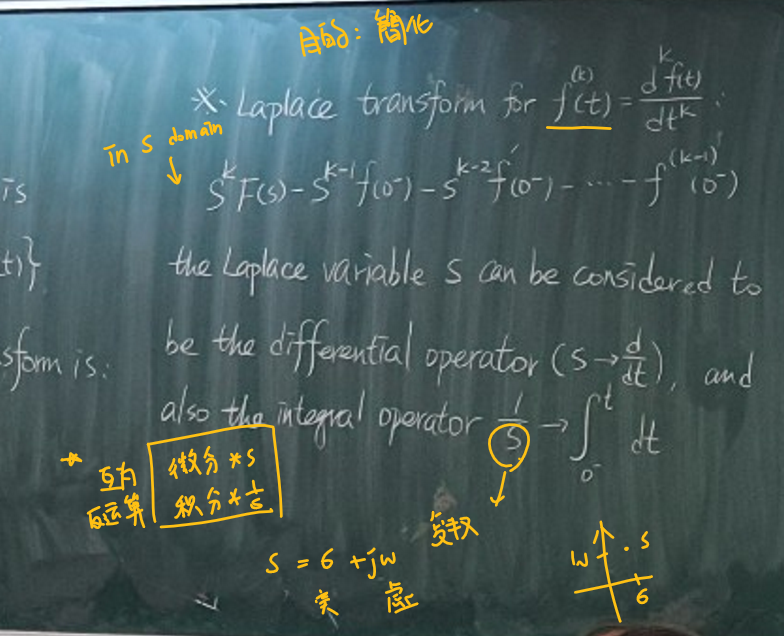 目的：簡化
※. Laplace transform for f^(k)(t) = d^k f(t) / dt^k :
in s domain
↓
S^k F(s) - S^(k-1) f(0⁻) - S^(k-2) f'(0⁻) - ... - f^(k-1)(0⁻)
is
t)}
the Laplace variable S can be considered to
be the differential operator (S → d/dt), and
sform is:
also the integral operator 1/S → ∫_0⁻^t dt
* 互為
反運算
微分 * s
積分 * 1/6
複数
s = 6 + jw
実 虛
w
. s
6